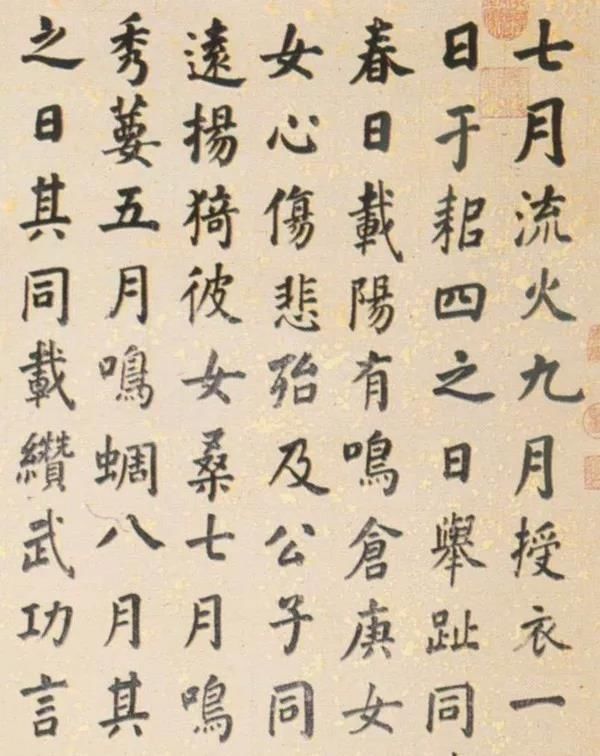 七月流火九月授衣一
日于耜四之日舉趾同
春日載陽有鳴倉庚女
女心傷悲殆及公子同
遠揚猗彼女桑七月鳴
秀葽五月鳴蜩八月其
之日其同載纘武功言